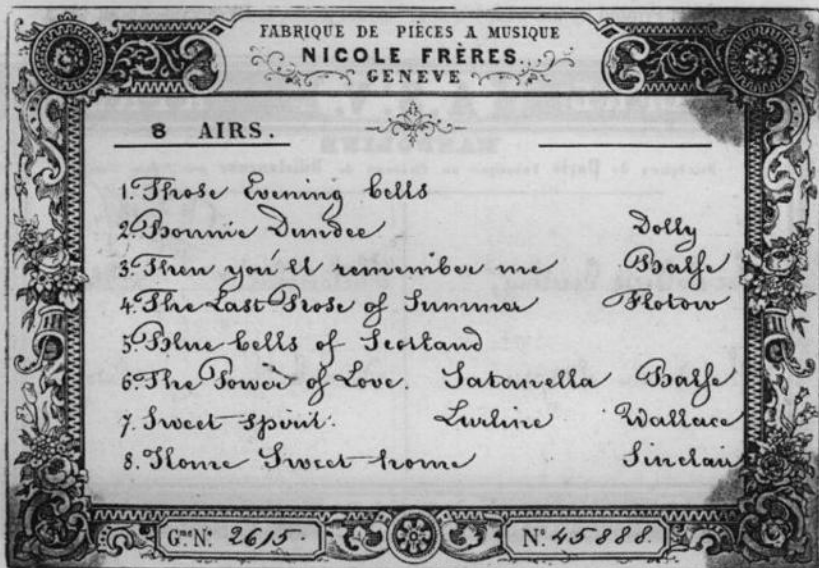 FABRIQUE DE PIÈCES A MUSIQUE
NICOLE FRÈRES.
GENEVE
8 AIRS.
1. Those Evening bells
2. Bonnie Dundee Dolly
3. Then you'll remember me Balfe
4. The Last Rose of Summer Flotow
5. Blue bells of Scotland
6. The Power of Love. Satanella Balfe
7. Sweet spirit. Lurline Wallace
8. Home Sweet home Sinclair
Gme No. 2615. No. 45888.